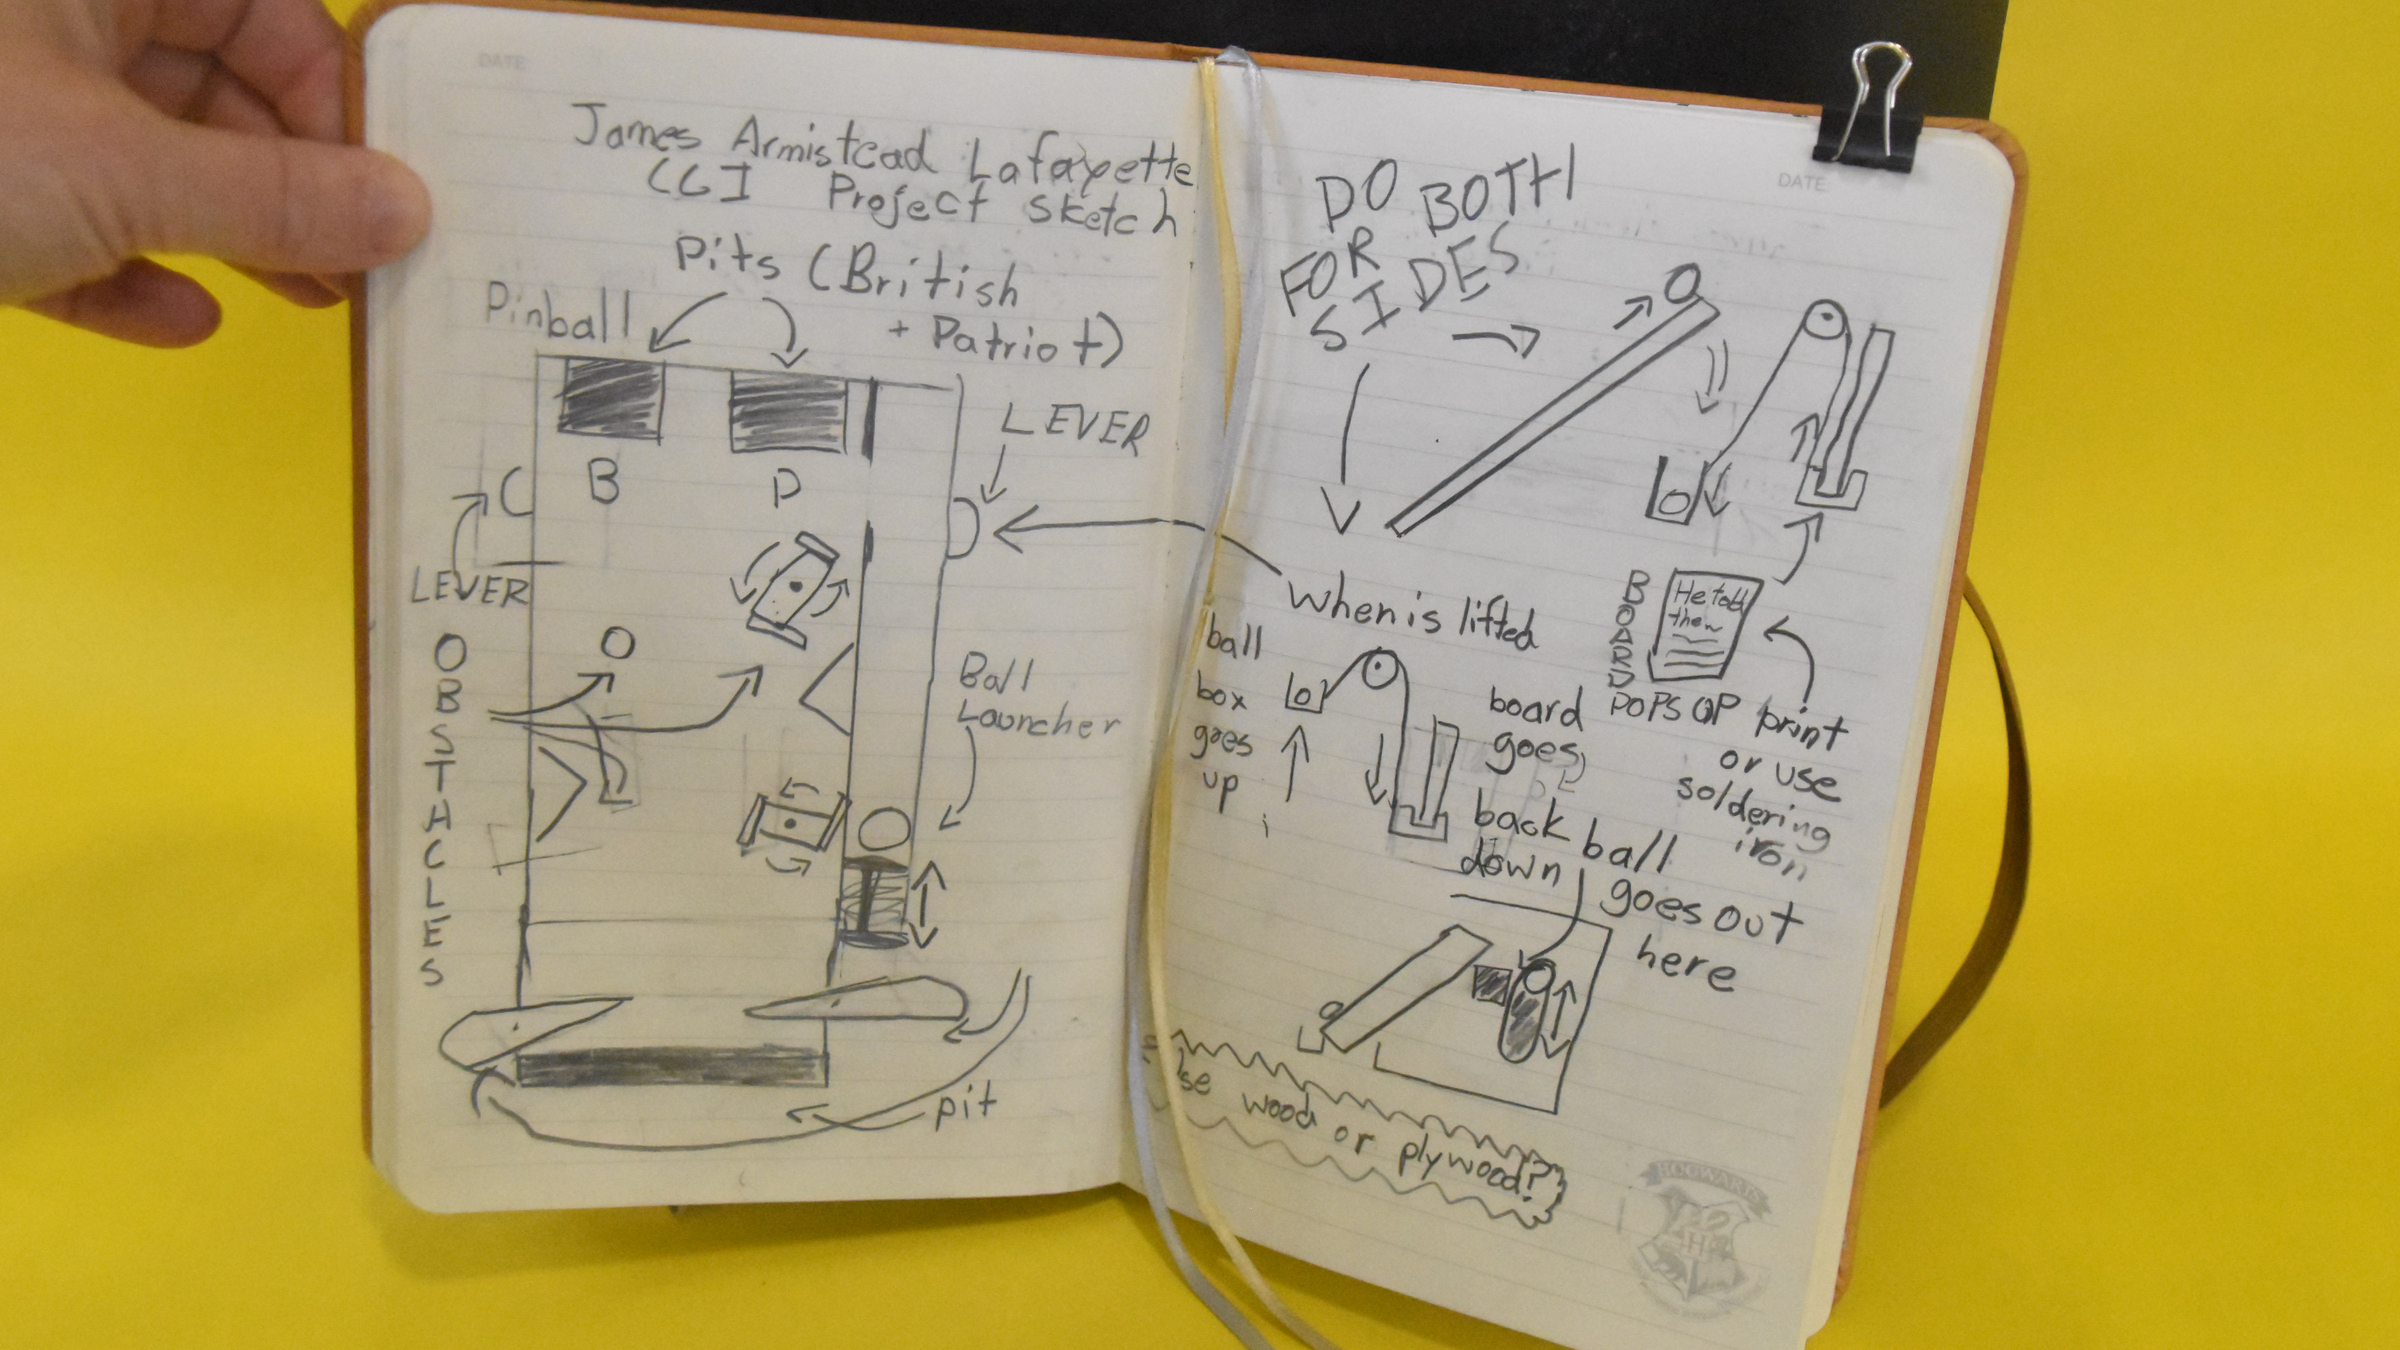 DATE
James Armistead Lafayette
CGI Project Sketch
Pits (British
+ Patriot)
Pinball
LEVER
B
P
C
LEVER
OBSTACLES
Ball
Launcher
pit
DATE
DO BOTH
FOR
SIDES
When is lifted
ball
box
goes
up
board
goes
back
down
BOARD
He told
them
POPS UP
print
or use
soldering
iron
ball
goes out
here
Use wood or plywood?
HOGWARTS
H